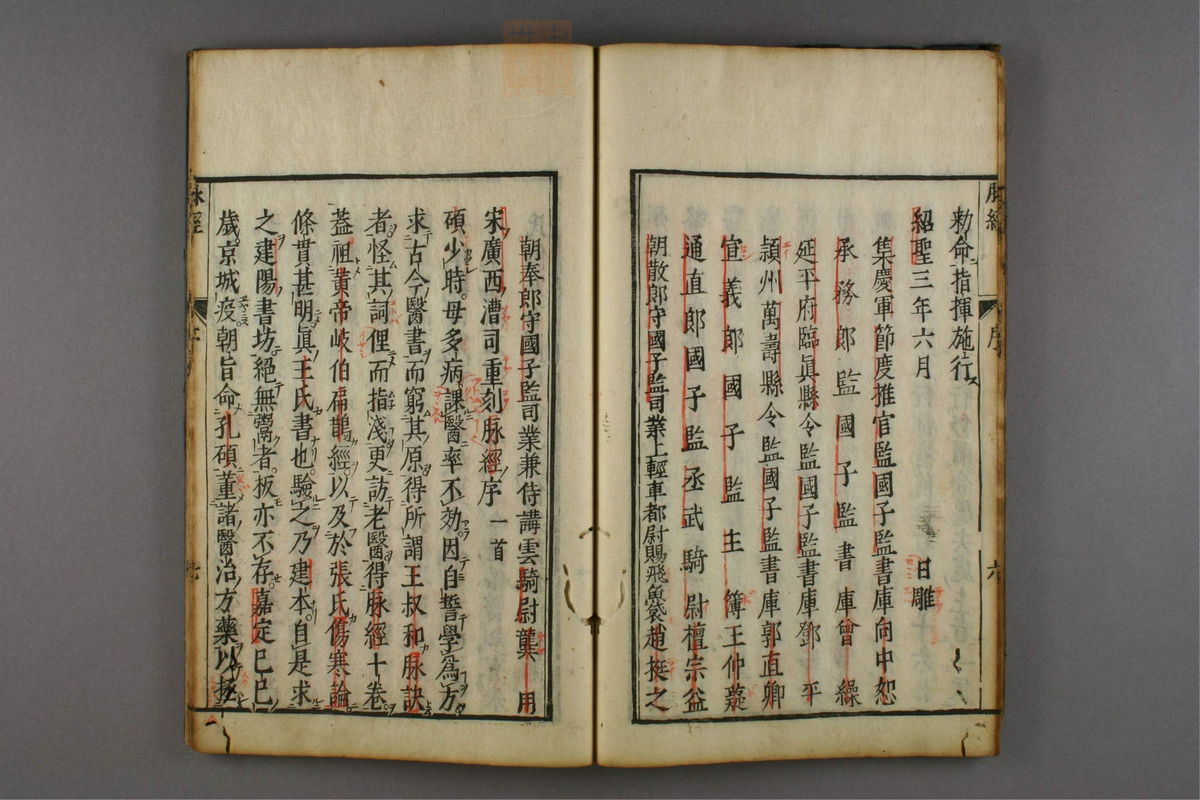 勑命指揮施行
紹聖三年六月　日雕
集慶軍節度推官監國子監書庫向中恕
承務郎監國子監書庫曾繰
延平府臨眞縣令監國子監書庫鄧平
潁州萬壽縣令監國子監書庫郭直卿
宣義郎國子監主簿王仲薿
通直郎國子監丞武騎尉檀宗益
朝散郎守國子監司業上輕車都尉賜飛魚袋趙挺之
朝奉郎守國子監司業兼侍講雲騎尉龔　用
宋廣西漕司重刻脉經序　一首
碩少時母多病課醫率不効因自誓學爲方
求古今醫書而窮其原得所謂王叔和脉訣
者怪其詞俚而指淺更訪老醫得脉經十卷
蓋祖黄帝岐伯扁鵲經以及於張氏傷寒論
條貫甚明眞王氏書也驗之乃建本自是求
之建陽書坊絕無鬻者板亦不存嘉定己巳
歲京城疫朝旨命孔碩董諸醫治方藥以拯
脉經
序
六